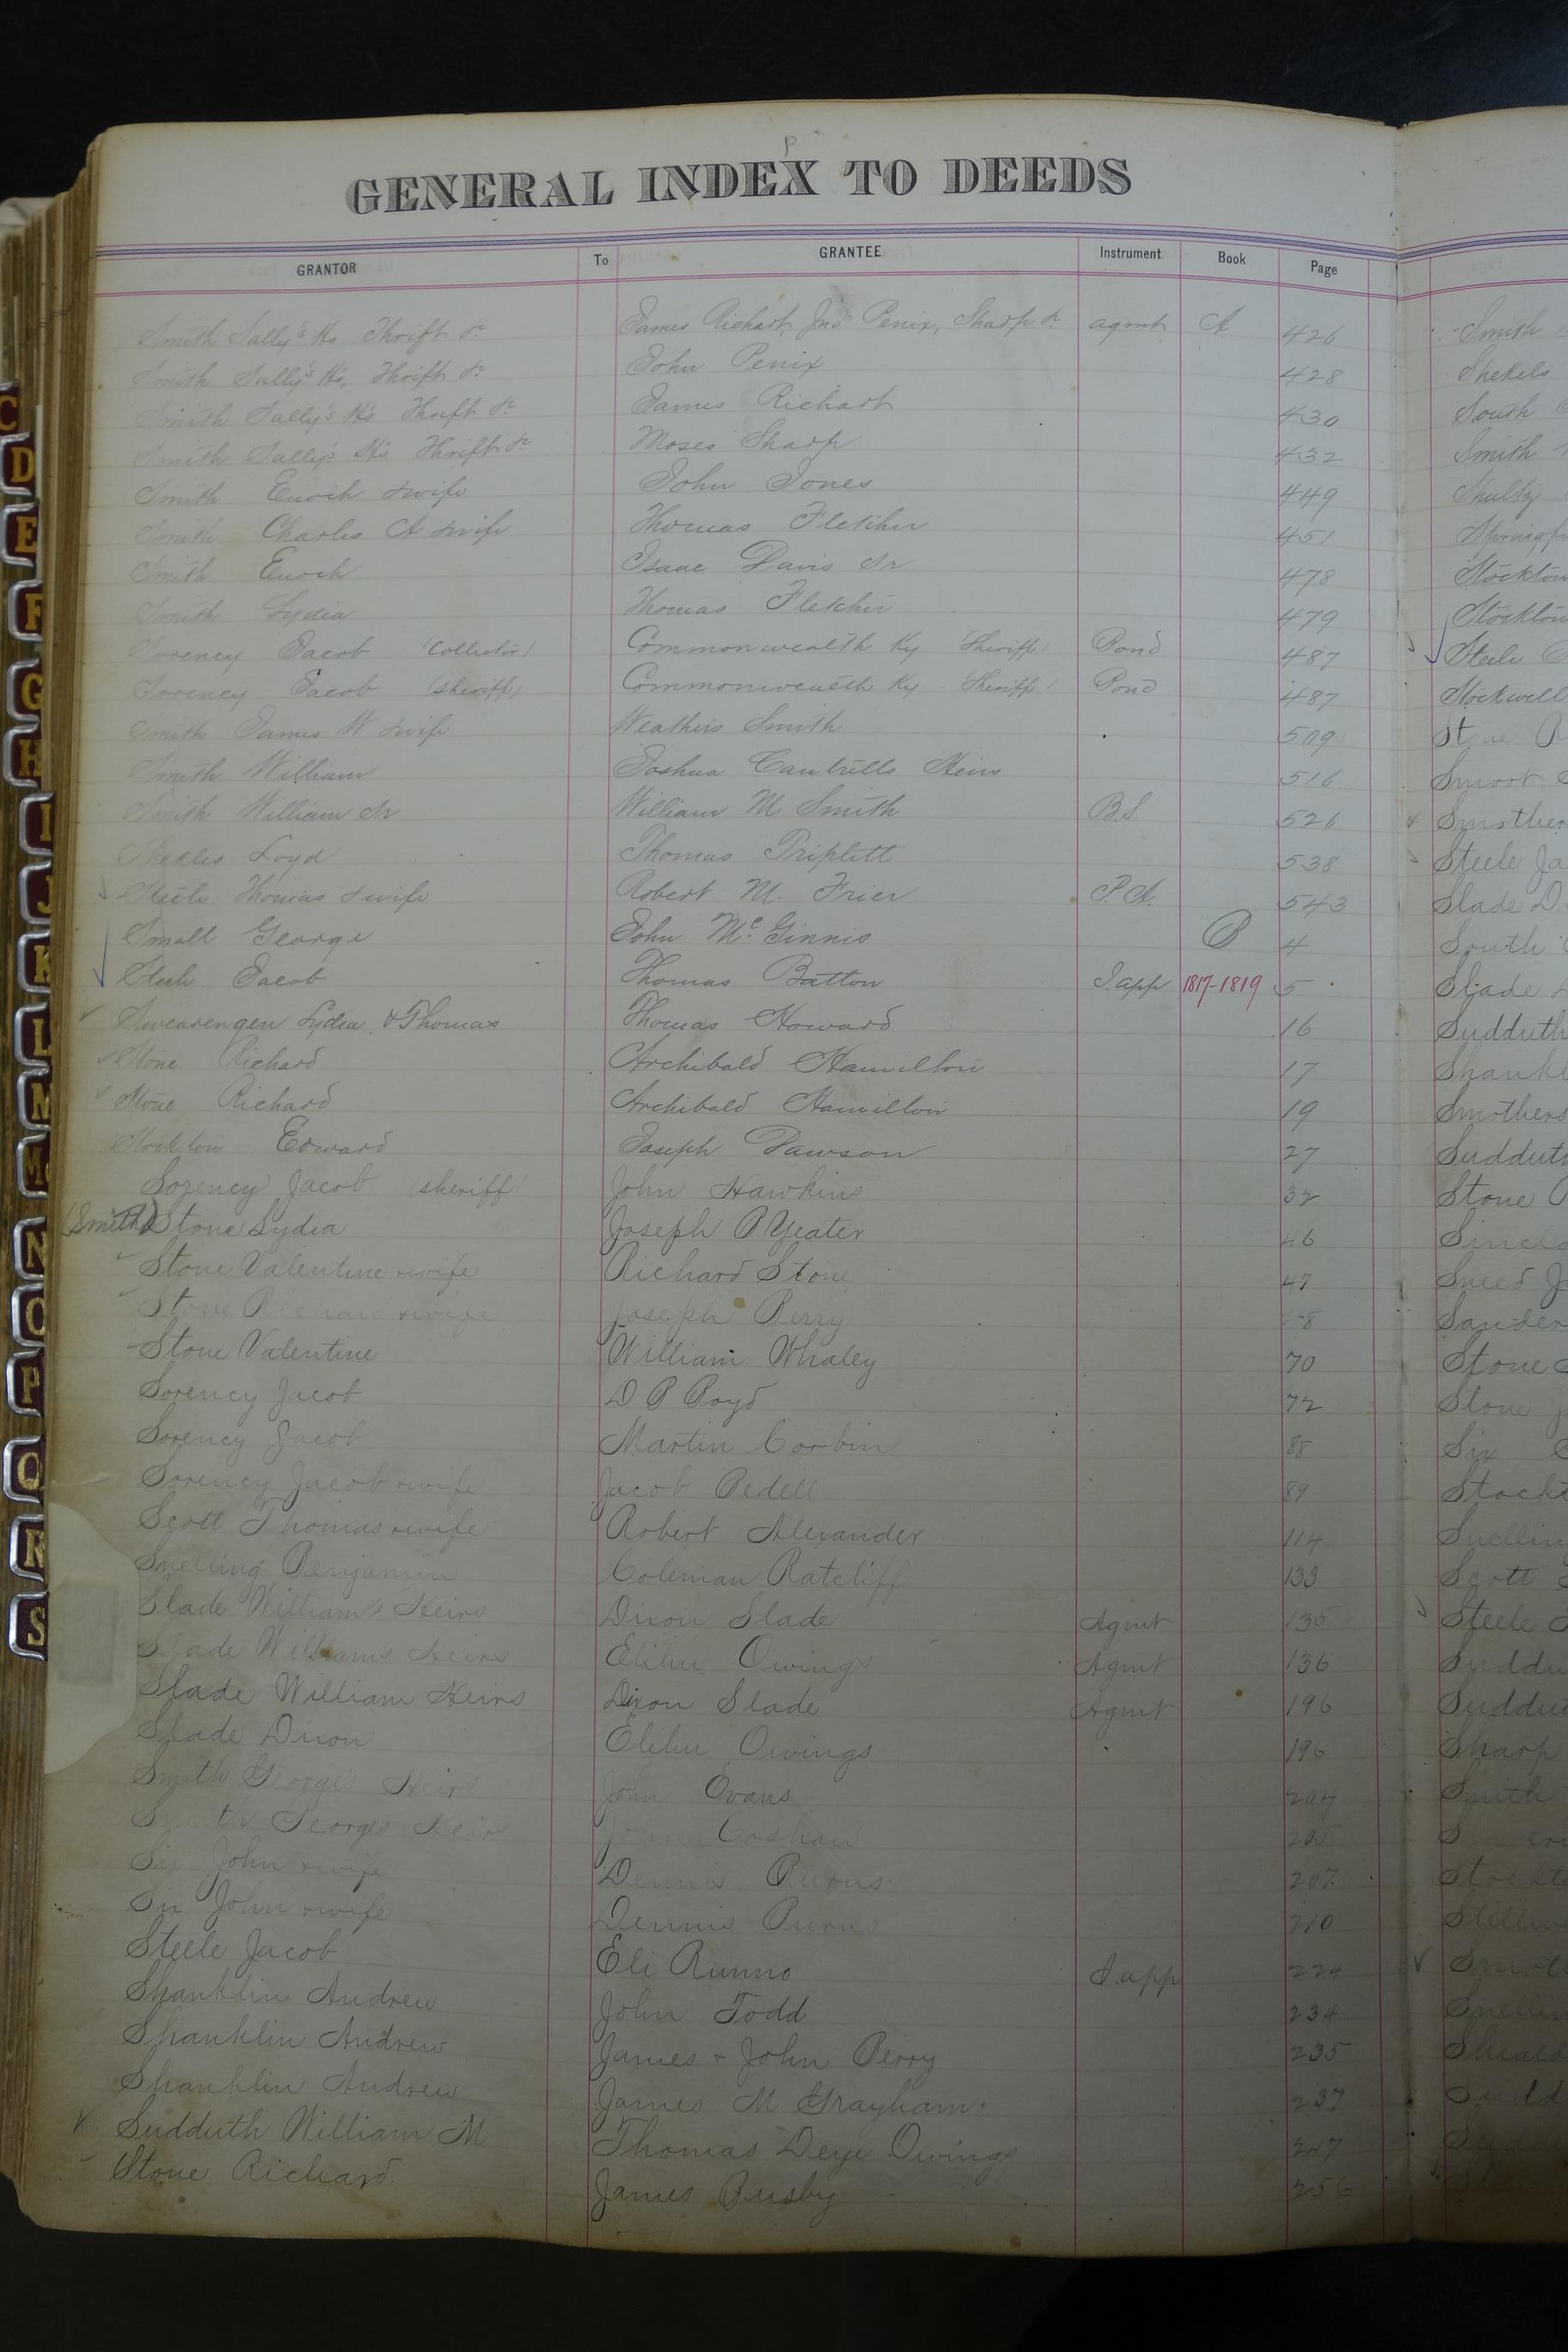 GENERAL INDEX TO DEEDS
GRANTOR To GRANTEE Instrument Book Page
Smith Sally's Hs Thrift &c James Richart, Jno Penix, Sharp &c agmt A 426
Smith Sally's Hs, Thrift &c John Penix 428
Smith Sally's Hs Thrift &c James Richart 430
Smith Sally's Hs Thrift &c Moses Sharp 432
Smith Enoch & wife John Jones 449
Smith Charles A & wife Thomas Fletcher 451
Smith Enoch Isaac Davis Sr 478
Smith Lydia Thomas Fletcher 479
Sorency Jacob (Collector) Commonwealth Ky Sheriff Bond 487
Sorency Jacob (Sheriff) Commonwealth Ky Sheriff Bond 487
Smith James W & wife Weathers Smith 509
Smith William Joshua Cantrills Heirs 516
Smith William Sr William M Smith B.S 526
Shekles Loyd Thomas Triplett 538
Steele Thomas & wife Robert M. Frier P.A. 543
Small George John McGinnis B 4
Steele Jacob Thomas Batton I.app 1817-1819 5
Swearengen Lydia & Thomas Thomas Howard 16
Stone Richard Archibald Hamilton 17
Stone Richard Archibald Hamilton 19
Stockton Edward Joseph Dawson 27
Sorency Jacob (sheriff) John Hawkins 32
(Smith) Stone Lydia Joseph B Yeater 46
Stone Valentine & wife Richard Stone 47
Stone Richard & wife Joseph Berry
Stone Valentine William Whaley 70
Sorency Jacob D B Boyd 72
Sorency Jacob Martin Corbin 88
Sorency Jacob & wife Jacob Bedell 89
Scott Thomas & wife Robert Alexander 114
Snelling Benjamin Coleman Ratcliff 133
Slade William's Heirs Dixon Slade Agmt 135
Slade Williams Heirs Elihu Owings Agmt 136
Slade William Heirs Dixon Slade Agmt 196
Slade Dixon Elihu Owings 196
Smith George's Heirs John Evans 204
Smith George's Heirs John Coshaw 205
Six John & wife Dennis Burns 207
Six John & wife Dennis Burns 210
Steele Jacob Eli Bunno I.app 224
Shanklin Andrew John Todd 234
Shanklin Andrew James & John Berry 235
Shanklin Andrew James M Grayham 237
Sudduth William M Thomas Deye Owings 247
Stone Richard. James Busby 256
Smith
Shekels
South
Smith
Shultz
Stockton
Stockton
Steele
Stockwell
Stone
Smoot
Smother
Steele Ja
Slade D
South
Slade
Sudduth
Shankl
Smothers
Suddut
Stone
Sincl
Sneed J
Sander
Stone
Stone
Six
Stockt
Snellin
Scott
Steele
Suddu
Suddu
Sharp
Smith
Stockt
Snellin
C
D
E
F
G
H
I
J
K
L
M
Mc
N
O
P
Q
R
S